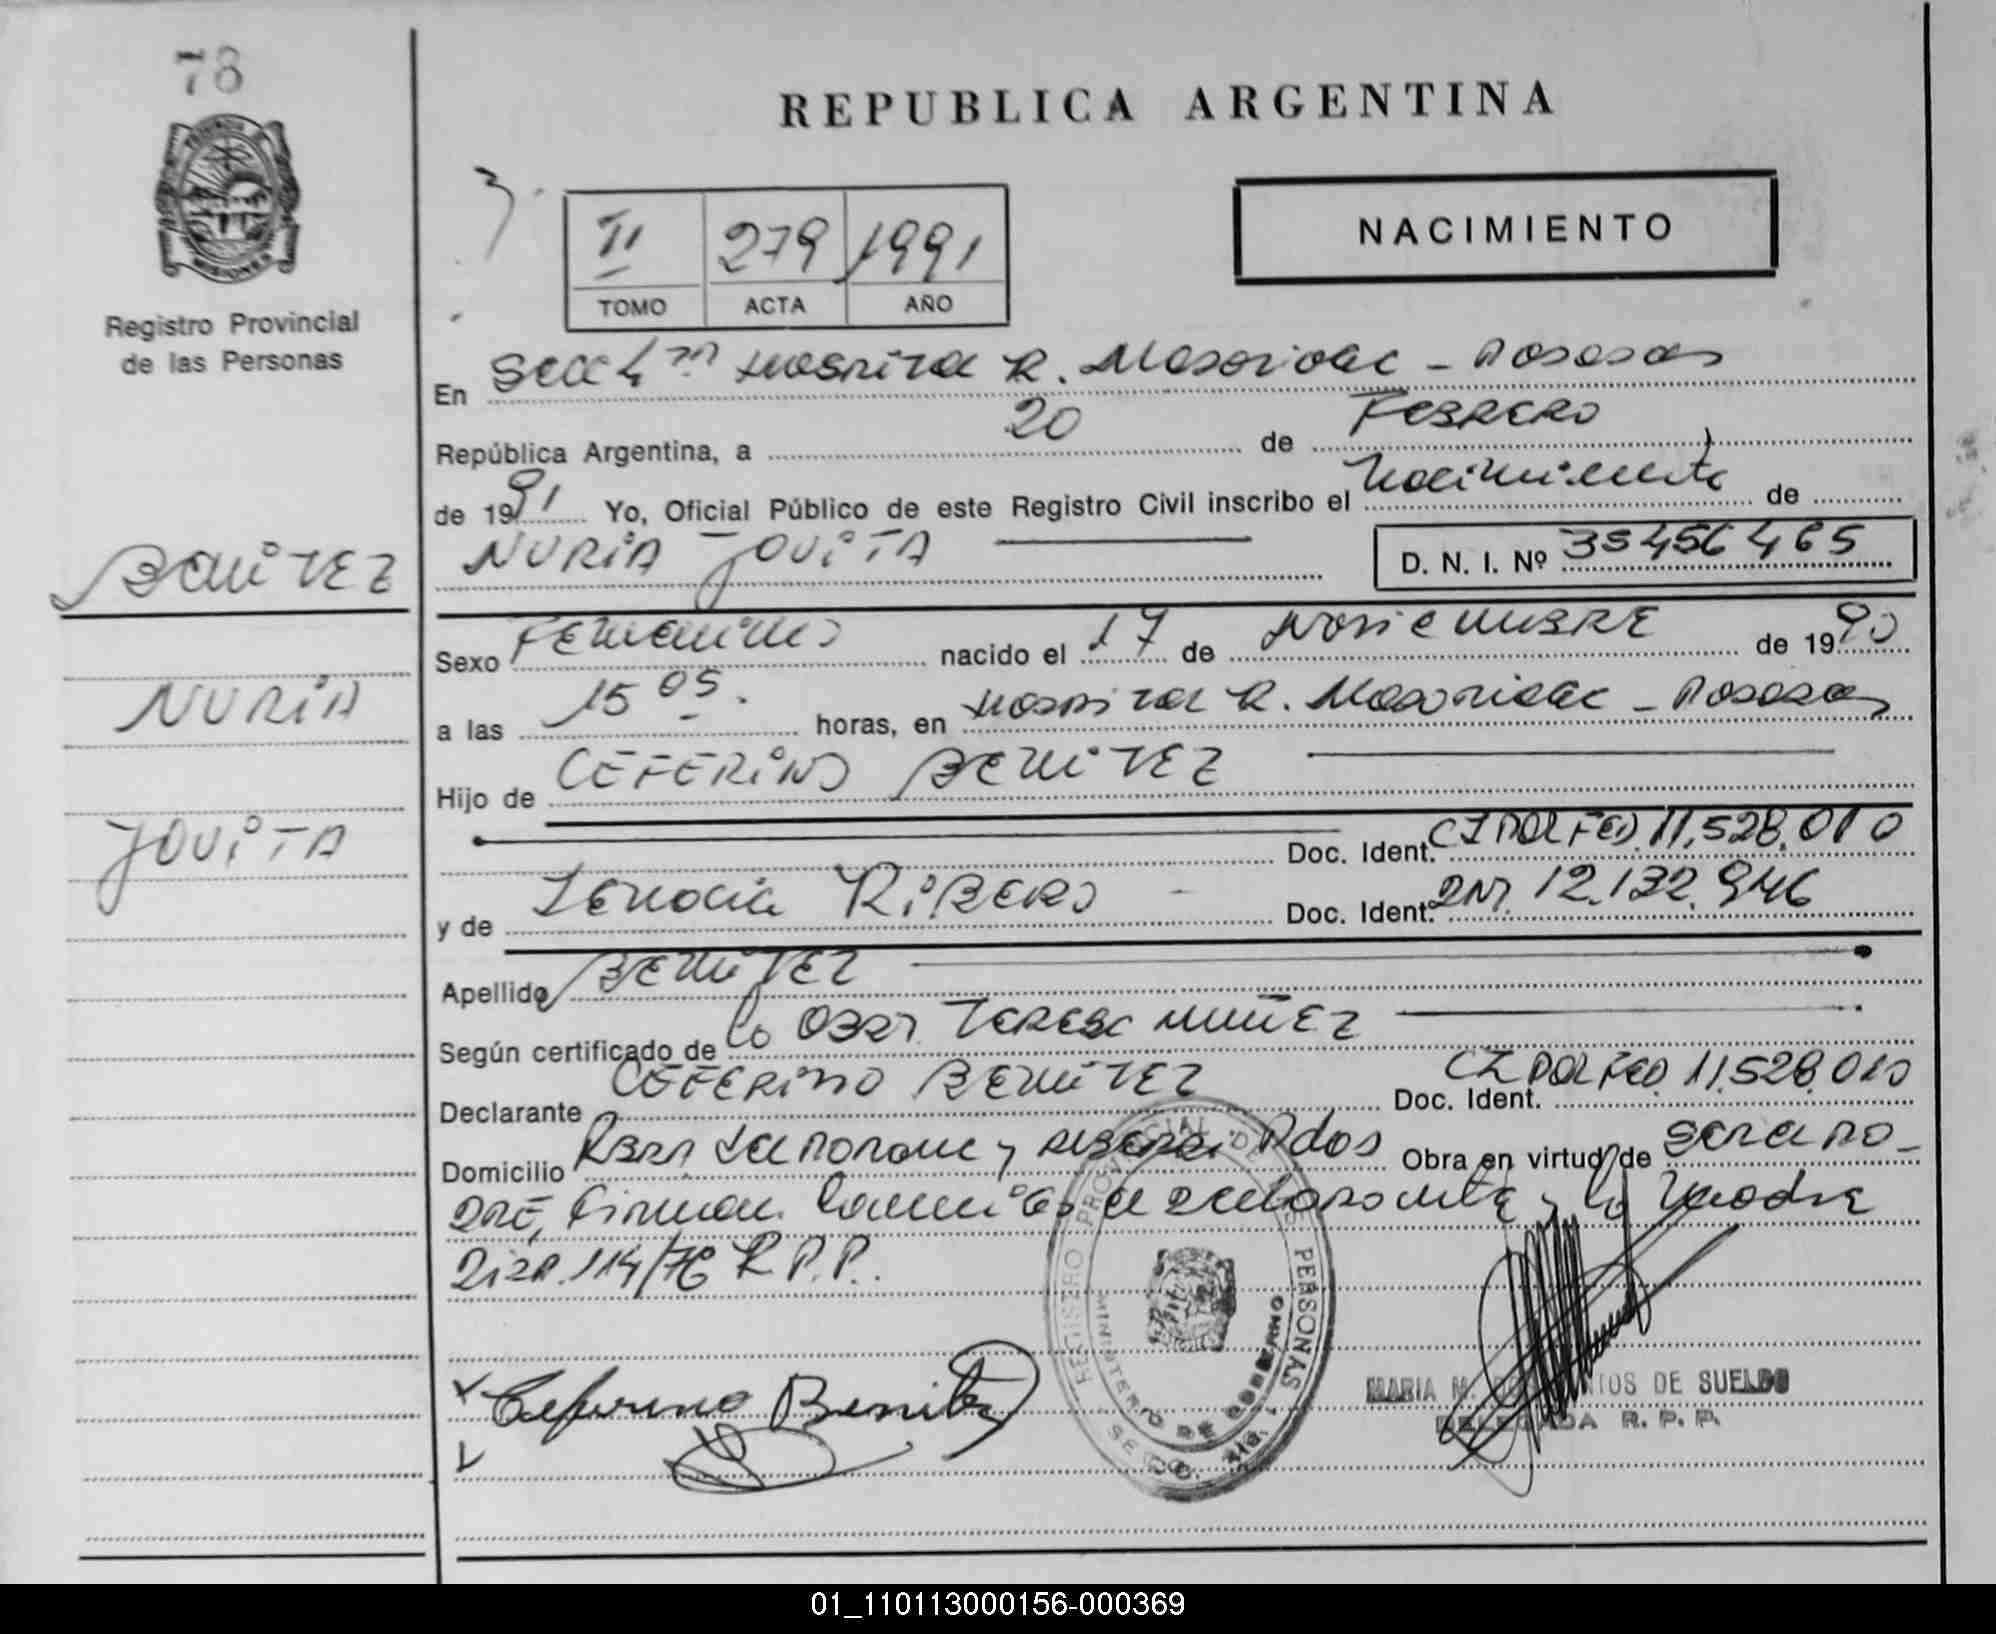 78
REPUBLICA ARGENTINA
PROVINCIA DE
MISIONES
Registro Provincial
de las Personas
NACIMIENTO
II 279 1991
TOMO ACTA AÑO
En Secc 4ª Hospital R. Madariaga - Posadas
República Argentina, a 20 de Febrero
de 1991 Yo, Oficial Público de este Registro Civil inscribo el Nacimiento de
NURIA JOVITA D. N. I. Nº 35456465
BENITEZ
NURIA
JOVITA
Sexo Femenino nacido el 17 de Noviembre de 1990
a las 15 05 horas, en Hospital R. Madariaga - Posadas
Hijo de CEFERINO BENITEZ
Doc. Ident. CI Pol Fed. 11.528.010
y de RIBERO Doc. Ident. DNI. 12.132.946
Apellido BENITEZ
Según certificado de la Obst. Teresa Nuñez
Declarante CEFERINO BENITEZ Doc. Ident. CI Pol Fed 11.528.010
Domicilio y Pdas Obra en virtud de ser el pa-
dre, Firman la madre
Disp. 114/76 R.P.P.
Ceferino Benitez
REGISTRO PROVINCIAL DE LAS PERSONAS
MINISTERIO DE GOBIERNO
MARIA M. DE SUELDO
DELEGADA R. P. P.
01_110113000156-000369